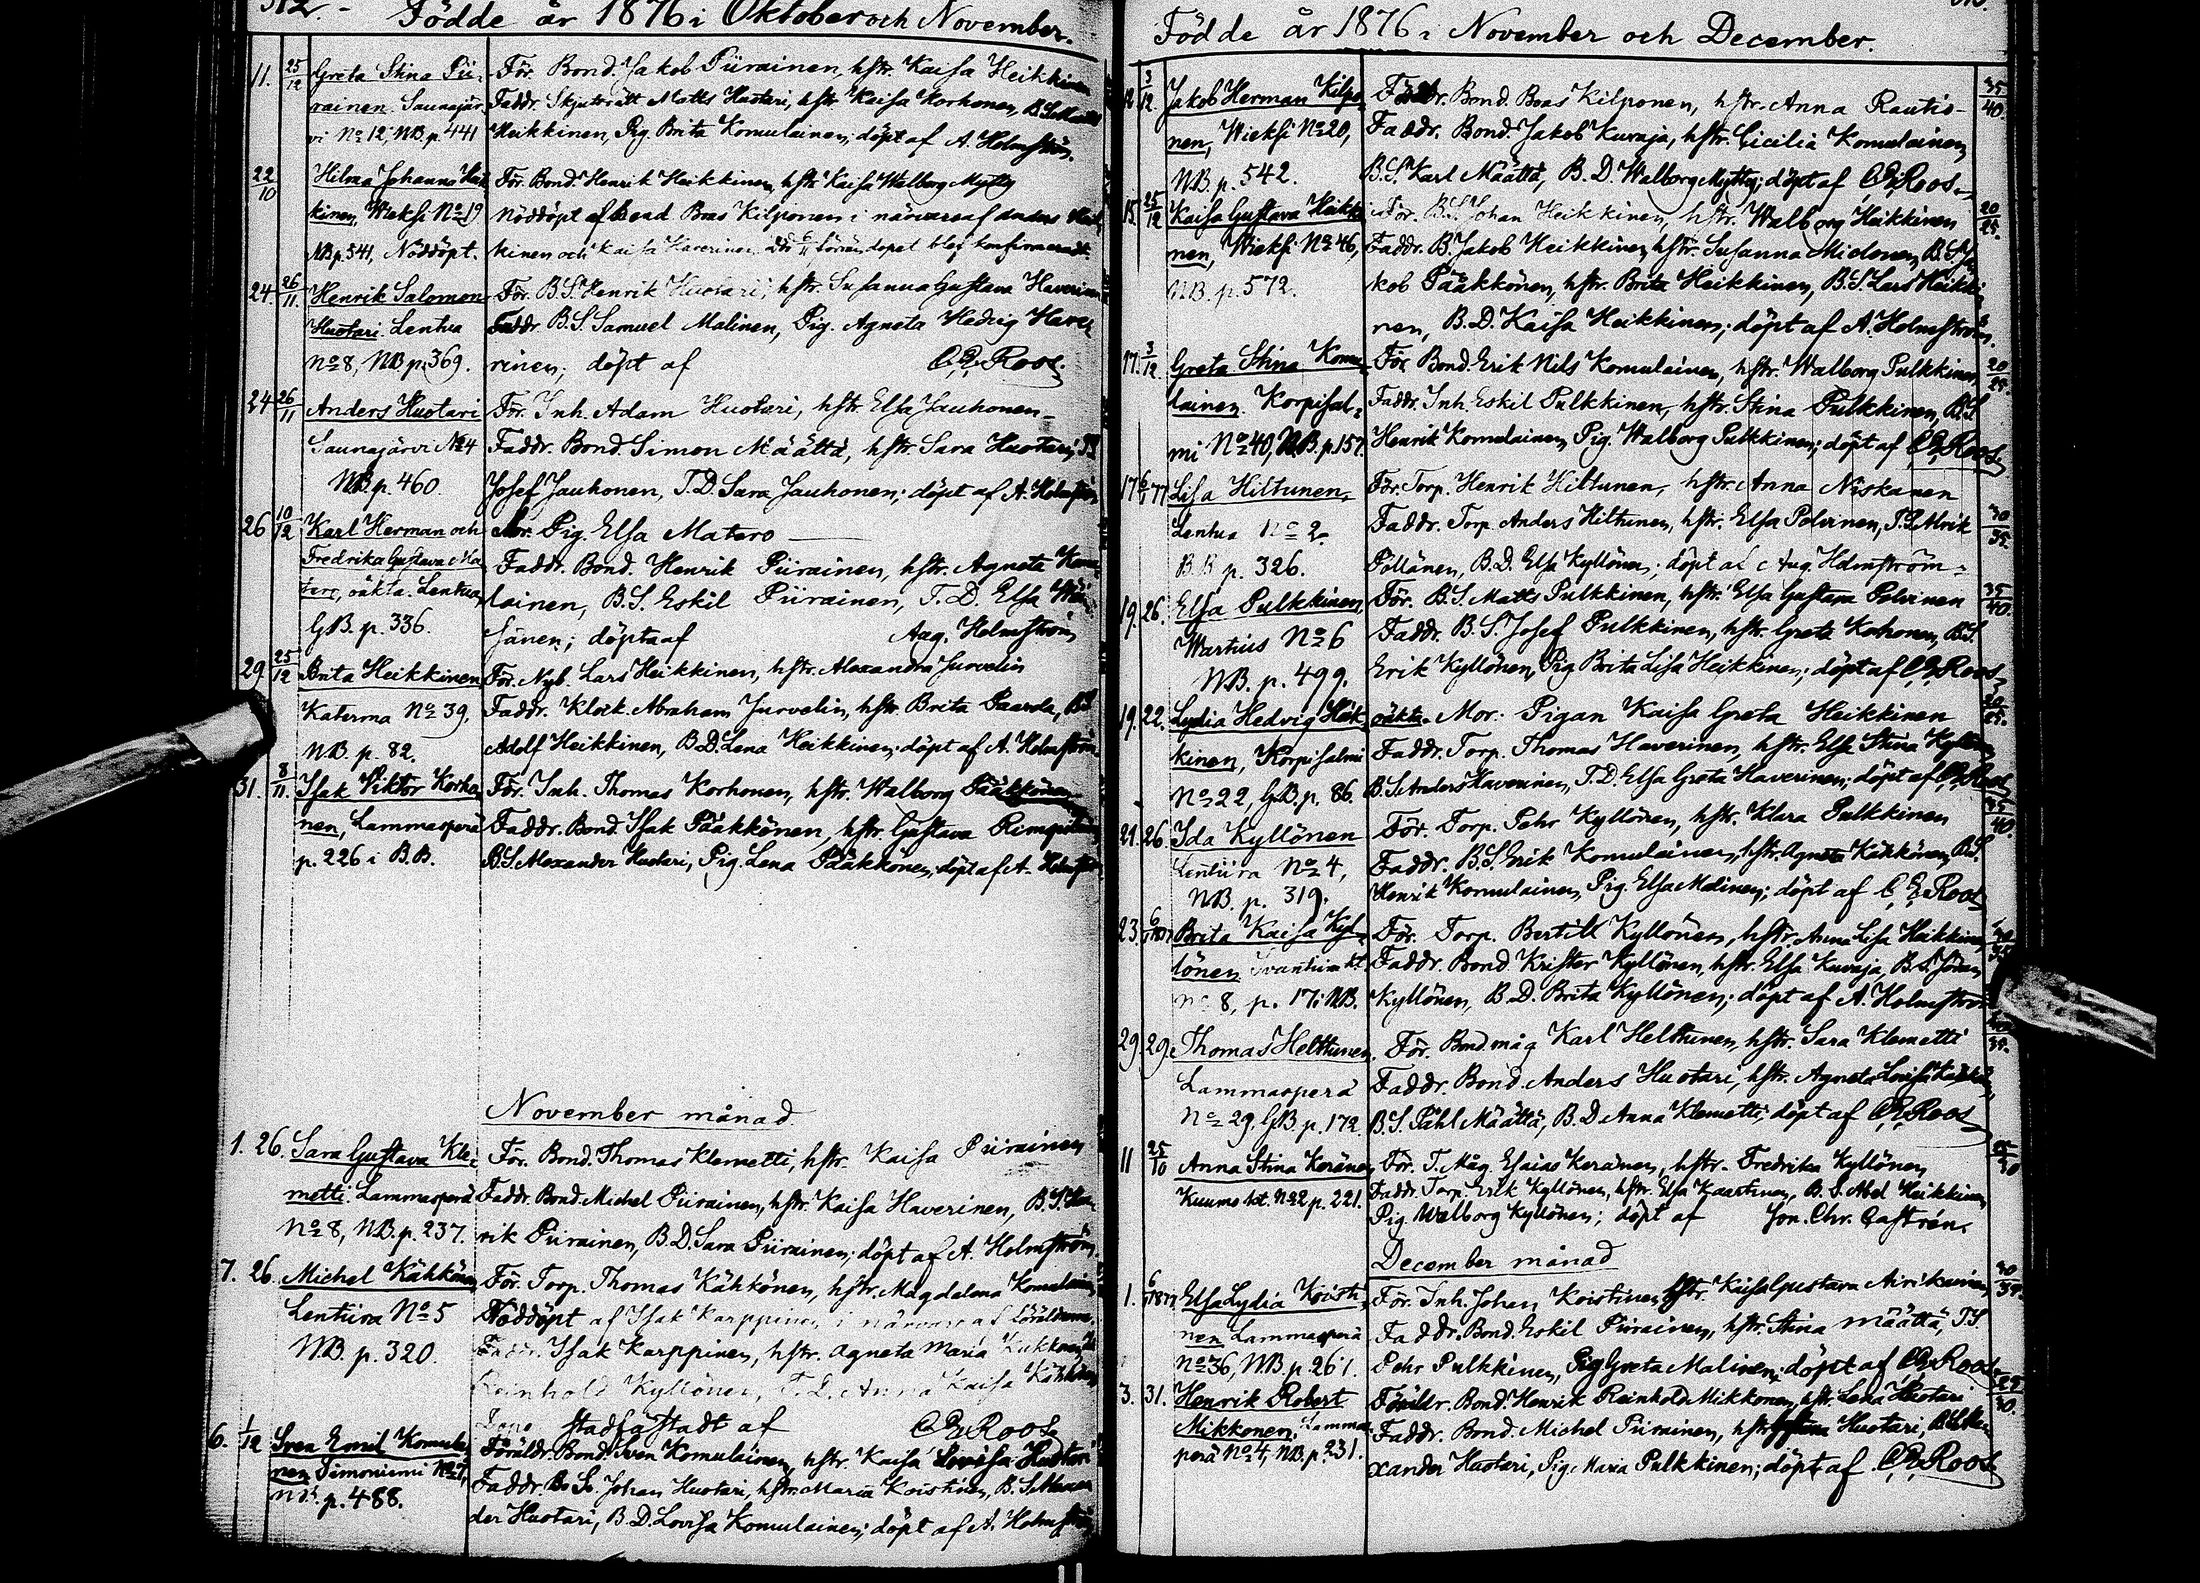 312.-
Födde år 1876 i Oktober och November.
11. 25/12 Greta Stina Pii- För. Bond. Jakob Piirainen, hstr. Kaisa Heikkinen
rainen. Saunajär- Faddr. Skjutsrätt Matts Huotari, hstr. Kaisa Korhonen, B.S.
vi No 12, NB. p. 441 Heikkinen, Pig. Brita Komulainen; döpt af A. Holmström.
22/10 Hilma Johanna Heik- För. Bond. Henrik Heikkinen, hstr. Kaisa Walborg Mytty
kinen, Wieksi No 19 nöddöpt af Bond Boas Kilponen i närvaro af Anders Heik-
NB p. 541, Nöddöpt. kinen och Kaisa Haverinen dopet blef konfirmeradt
24. 26/11. Henrik Salomon För. B.S. Henrik Huotari, hstr. Susanna Gustava Haverinen
Huotari Lentua Faddr. B.S. Samuel Malinen, Pig. Agneta Hedvig Have-
No 8, NB p. 369. rinen; döpt af C.E. Roos.
24 26/11 Anders Huotari För. Inh. Adam Huotari, hstr. Elsa Jauhonen-
Saunajärvi No 4 Faddr. Bond. Simon Määttä, hstr. Sara Huotari,
NB p. 460. Josef Jauhonen, T.D. Sara Jauhonen; döpt af A. Holmström
26 10/12 Karl Herman och Mor. Pig. Elsa Matero
Fredrika Gustava Ma- Faddr. Bond. Henrik Piirainen, hstr. Agneta Komu-
tero, oäkta. Lentua, lainen, B.S. Eskil Piirainen, T.D. Elsa
GB. p. 336. sänen; döpta af Aug. Holmström
29 25/12 Brita Heikkinen För. Nyb. Lars Heikkinen, hstr. Alexandra Jurvelin
Katerma No 39, Faddr. Klock. Abraham Jurvelin, hstr. Brita Paavola, B.S.
NB. p. 82. Adolf Heikkinen, B.D. Lena Heikkinen; döpt af A. Holmström.
31. 8/11. Isak Viktor Korho- För. Inh. Thomas Korhonen, hstr. Walborg Pääkkönen
nen, Lammasperä Faddr. Bond. Isak Pääkkönen, hstr. Gustava
p. 226 i B.B. B.S. Alexander Huotari, Pig. Lena Pääkkönen; döpt af A. Holmström
November månad.
1. 26. Sara Gustava Kle- För. Bond. Thomas Klemetti, hstr. Kaisa Piirainen
metti. Lammasperä Faddr. Bond. Michel Piirainen, hstr. Kaisa Haverinen, B.S. Hen-
No 8, NB. p. 237. rik Piirainen, B.D. Sara Piirainen; döpt af A. Holmström.
7. 26. Michel Kähkönen För. Torp. Thomas Kähkönen, hstr. Magdalena Komulainen
Lentiira No 5 Nöddöpt af Isak Karppinen i närvaro af föräldrarne.
NB. p. 320. Faddr. Isak Karppinen, hstr. Agneta Maria Kukkonen,
Reinhold Kyllönen, T.D. Anna Kaisa Kähkönen
Dopet stadfästadt af C.E. Roos.
6. 1/12 Sven Emil Komulai- Föräldr. Bond. Sven Komulainen, hstr. Kaisa Lovisa Huotari
nen Timoniemi No 7, Faddr. B.S. Johan Huotari, hstr. Maria Koistinen, B.S.
NB. p. 488. der Huotari, B.D. Lovisa Komulainen; döpt af A. Holmström
Födde år 1876 i November och December.
12 3/12. Jakob Herman Kilpo- Föräldr. Bond. Boas Kilponen, hstr. Anna Rautio- 35/40.
nen, Wieksi No 20, Faddr. Bond. Jakob Kuvaja, hstr. Cicilia Komulainen,
NB. p. 542. B.S. Karl Määttä, B.D. Walborg Mytty; döpt af C.E. Roos.
15. 25/12 Kaisa Gustava Heikki- För. B.S. Johan Heikkinen, hstr. Walborg Heikkinen 20/25.
nen, Wieksi No 46, Faddr. B. Jakob Heikkinen, hstr. Susanna Mielonen, B.S. Ja-
NB. p. 572. kob Pääkkönen, hstr. Brita Heikkinen, B.S. Lars Heikki-
nen, B.D. Kaisa Heikkinen; döpt af A. Holmström.
17. 3/12 Greta Stina Komu- För. Bond. Erik Nils Komulainen, hstr. Walborg Pulkkinen, 20/25.
lainen. Korpisal- Faddr. Inh. Eskil Pulkkinen, hstr. Stina Pulkkinen, B.S.
mi No 40, NB. p. 157. Henrik Komulainen, Pig. Walborg Pulkkinen; döpt af C.E. Roos.
17 6/1 77 Lisa Hiltunen, För. Torp. Henrik Hiltunen, hstr. Anna Niskanen
Lentua No 2. Faddr. Torp. Anders Hiltunen, hstr. Elsa Polvinen, T.S. Ulrik 30/35.
B.B p. 326. Pöllänen, B.D. Elsa Kyllönen; döpt af Aug. Holmström-
19. 26. Elsa Pulkkinen, För. B.S. Matts Pulkkinen, hstr. Elsa Gustava Polvinen 35/40.
Wartius No 6 Faddr. B.S. Josef Pulkkinen, hstr. Greta Kohonen, B.S.
NB. p. 499. Erik Kyllönen, Pig Brita Lisa Heikkinen; döpt af C.E. Roos.
19. 22. Lydia Hedvig Heik- oäkta. Mor. Pigan Kaisa Greta Heikkinen 20/25.
kinen, Korpisalmi Faddr. Torp. Thomas Haverinen, hstr. Elsa Stina
No 22, GB. p. 86. B.S. Anders Haverinen, T.D. Elsa Greta Haverinen; döpt af C.E. Roos
21. 26. Ida Kyllönen För. Torp. Pehr Kyllönen, hstr. Klara Pulkkinen 35/40.
Lentiira No 4, Faddr. B.S. Erik Komulainen, hstr. Agneta Kähkönen, B.S.
NB. p. 319. Henrik Komulainen, Pig. Elsa Malinen; döpt af C.E. Roos
23. 6/1 1877 Brita Kaisa Kyl- För. Torp. Bertill Kyllönen, hstr. Anna Lisa Heikkinen
lönen Iivantiira No 8, p. 17 i NB. Faddr. Bond. Krister Kyllönen, hstr. Elsa Kuvaja, B.S. Johan
Kyllönen, B.D. Brita Kyllönen; döpt af A. Holmström
29. 29. Thomas Helttunen. För. Bond.måg Karl Helttunen, hstr. Sara Klemetti
Lammasperä Faddr. Bond. Anders Huotari, hstr. Agneta Lovisa
No 29. GB p. 172. B.S. Påhl Määttä, B.D. Anna Klemetti; döpt af C.E. Roos
11 25/10 Anna Stina Keränen För. T. Måg. Esaias Keränen, hstr. Fredrika Kyllönen
Kuumo No 2 p. 221. Faddr. Torp. Erik Kyllönen, hstr. Elsa Kaartinen, B.S. Abel Heikkinen
Pig. Walborg Kyllönen; döpt af Jon. Chr. Castrén.
December månad
1. 6/1 1877. Elsa Lydia Koisti- För. Inh. Johan Koistinen, hstr. Kaisa Gustava
nen Lammasperä Faddr. Bond. Eskil Piirainen, hstr. Stina Määttä, T.S.
No 36, NB. p. 261. Pehr Pulkkinen, Pig Greta Malinen; döpt af C.E. Roos.
3. 31. Henrik Robert Föräldr. Bond. Henrik Reinhold Mikkonen, hstr. Lena Huotari
Mikkonen, Lammas- Faddr. Bond. Michel Piirainen, hstr. Huotari, B.S. Ale-
perä No 4, NB. p. 231. xander Huotari, Pig. Maria Pulkkinen; döpt af C.E. Roos.